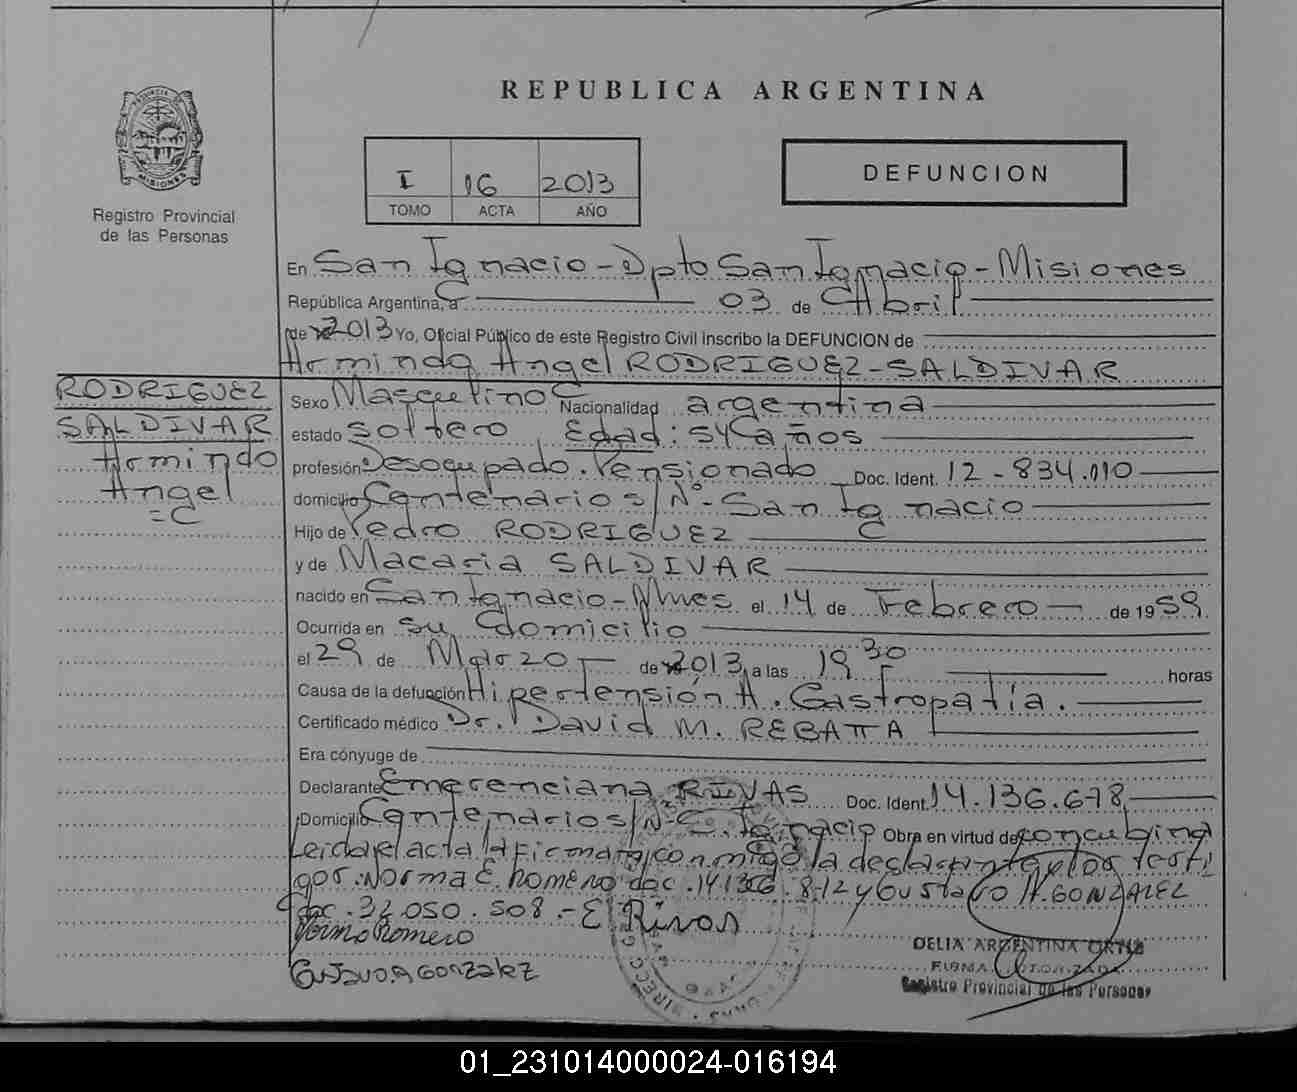 PROVINCIA DE
MISIONES
Registro Provincial
de las Personas
REPUBLICA ARGENTINA
I 16 2013
TOMO ACTA AÑO
DEFUNCION
En San Ignacio - Dpto San Ignacio - Misiones
República Argentina, a 03 de Abril
de 2013 Yo, Oficial Público de este Registro Civil inscribo la DEFUNCION de
Armindo Angel RODRIGUEZ - SALDIVAR
RODRIGUEZ
SALDIVAR
Armindo
Angel
Sexo Masculino Nacionalidad argentina
estado soltero Edad: 54 años
profesión Desocupado. Pensionado Doc. Ident. 12-834.010
domicilio Centenario s/Nº - San Ignacio
Hijo de Pedro RODRIGUEZ
y de Macaria SALDIVAR
nacido en San Ignacio - Mnes el 14 de Febrero de 1959
Ocurrida en su domicilio
el 29 de Marzo de 2013, a las 19 30 horas
Causa de la defunción Hipertensión A. Gastropatía.
Certificado médico Dr. David M. REBATTA
Era cónyuge de
Declarante Emerenciana RIVAS Doc. Ident. 14.136.678
Domicilio Centenario s/Nº - S. Ignacio Obra en virtud de concubina
Leida el acta la firman conmigo la declarante y los testi
gos: Norma E. Romero doc. 14.136.812 y Gustavo A. GONZALEZ
doc. 32.050.508.- E Rivas
Norma Romero
Gustavo A Gonzalez
DELIA ARGENTINA ORTIZ
FIRMA AUTORIZADA
Registro Provincial de las Personas
01_231014000024-016194